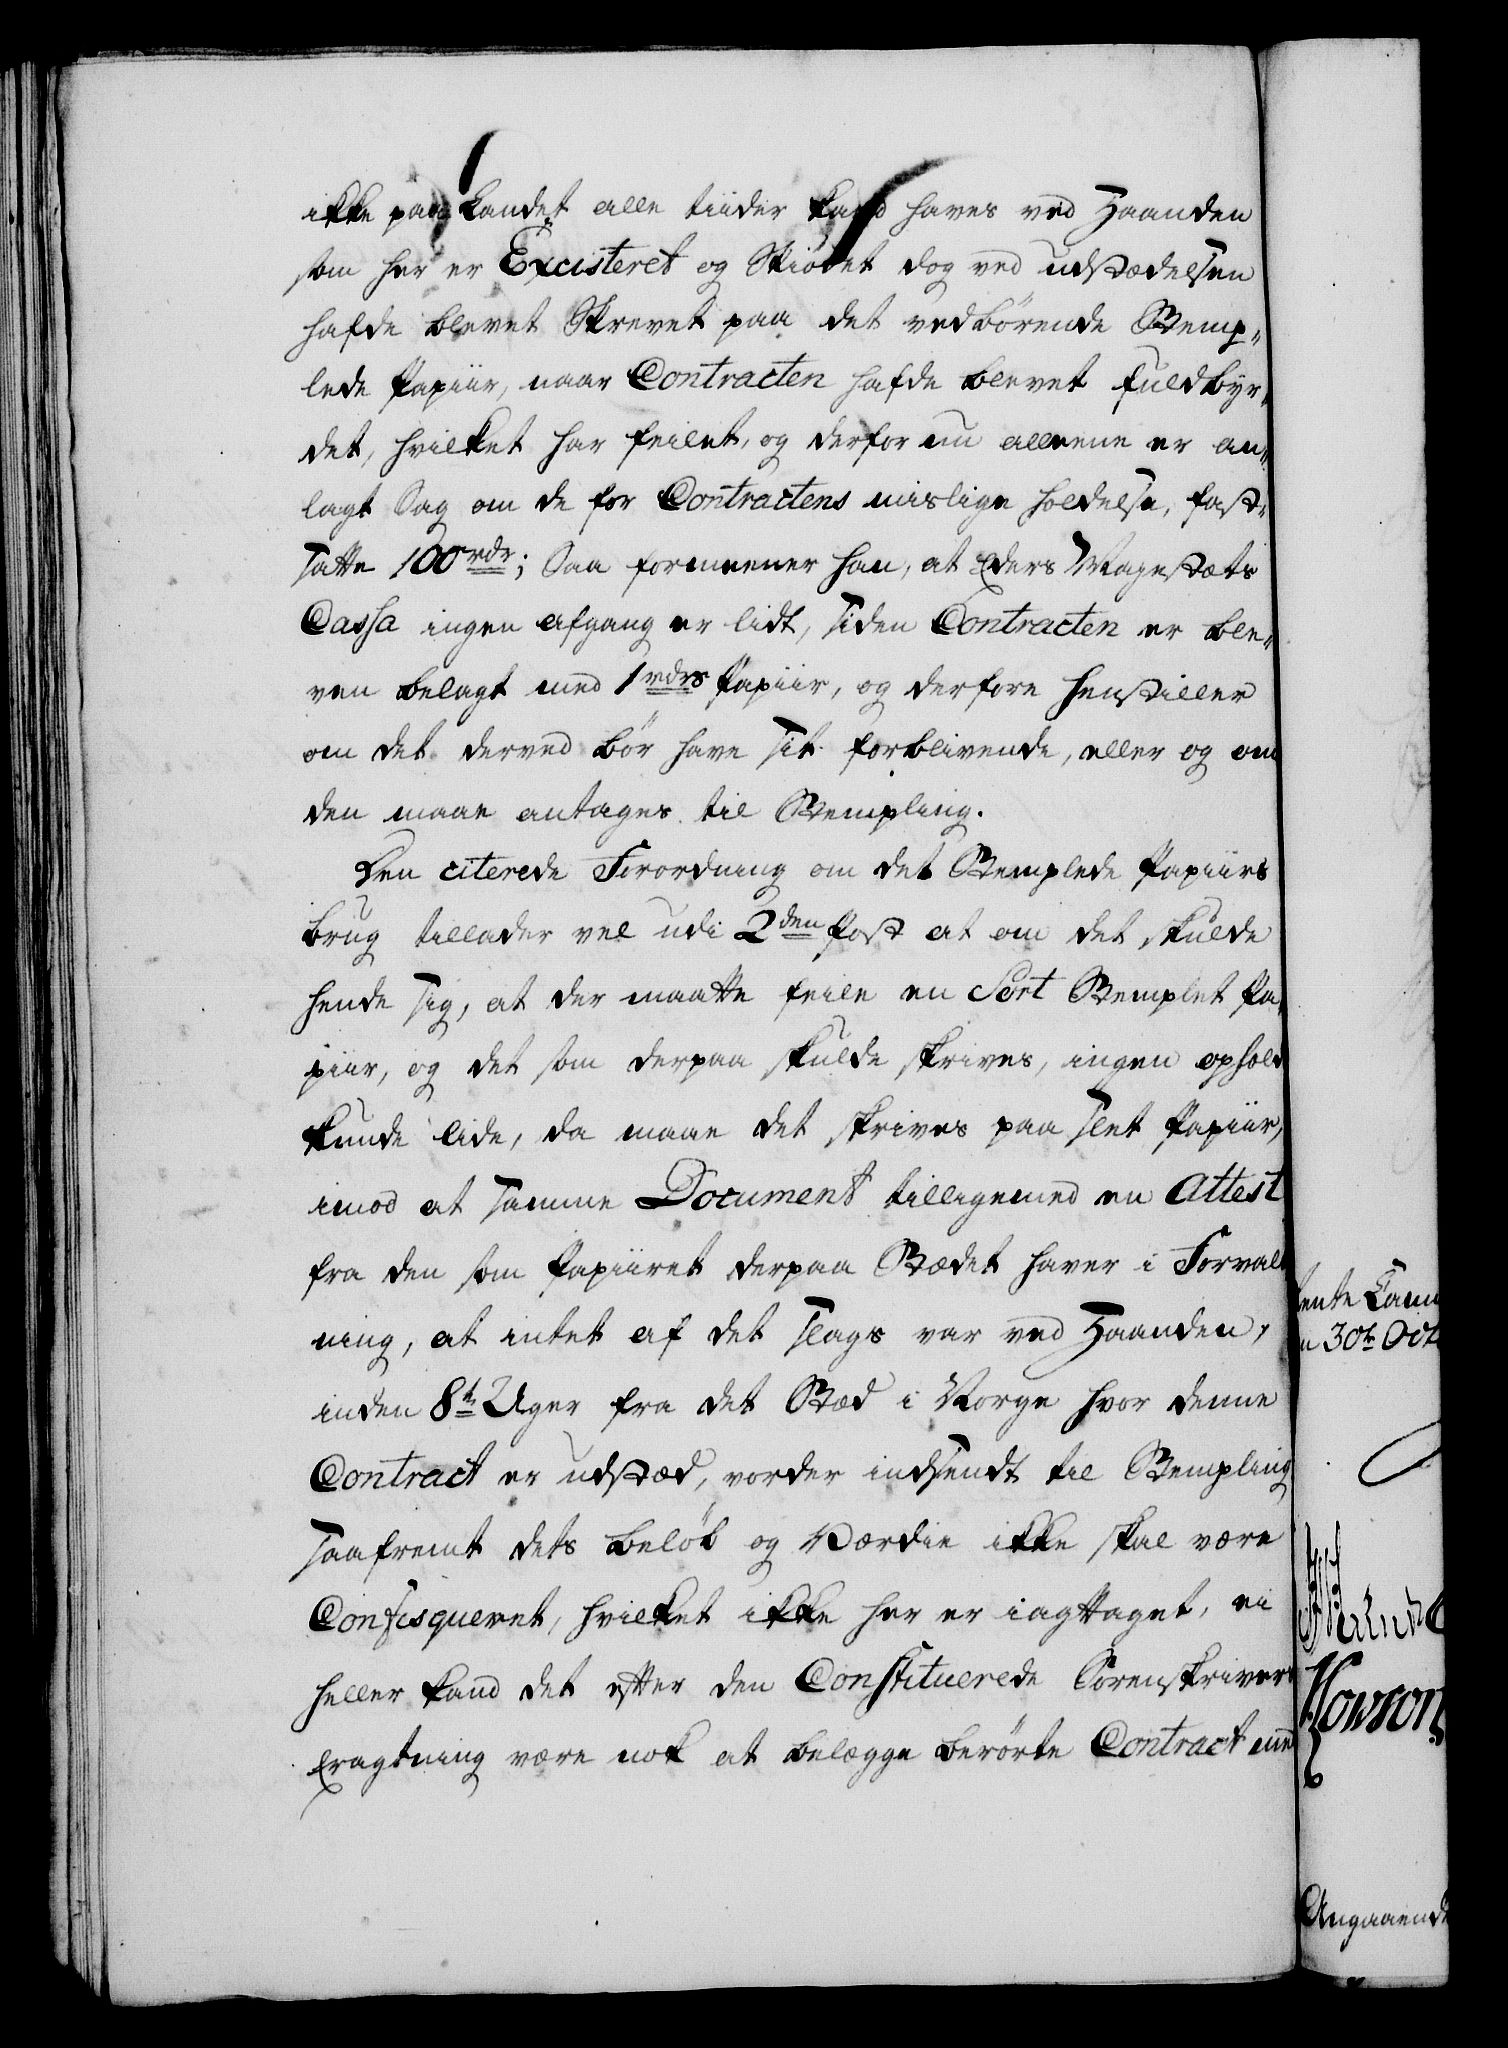 ikke paa Landet alle tiider kand haves ved Haanden
som her er Excisteret og Skiödet dog ved udstædelsen
hafde blevet Skrevet paa det vedbörende Stemp-
lede Papiir, naar Contracten hafde blevet fuldbyr-
det, hvilket har feilet, og derfor nu alleene er an-
lagt Sag om de for Contractens mislige holdelse, fast-
satte 100 rdr; Saa formeener han, at Eders Majestæts
Cassa ingen afgang er lidt, siden Contracten er ble-
ven belagt med 1 rdrs Papiir, og derfore henstiller
om det derved bör have sit forblivende, eller og om
den maae antages til Stempling.
Den citerede Forordning om det Stemplede Papiirs
brug tillader vel udi 2den Post at om det skulde
hende sig, at der maatte feile en Sort Stemplet Pa-
piir, og det som derpaa skulde skrives, ingen ophold
kunde lide, da maae det skrives paa slet Papiir,
imod at samme Document tilligemed en Attest
fra den som Papiiret derpaa Stædet haver i Forvalt
ning, at intet af det slags var ved Haanden,
inden 8te Uger fra det Stæd i Norge hvor denne
Contract er udstæd, vorder indsendt til Stempling
saafremt dets belöb og Værdie ikke skal være
Confisqueret, hvilket ikke her er iagttaget, ei
heller kand det efter den Constituerede Sorenskrivers
Eragtning være nok at belægge berörte Contract med
Rente Kam
n 30te Oct
Howson
Angaaende